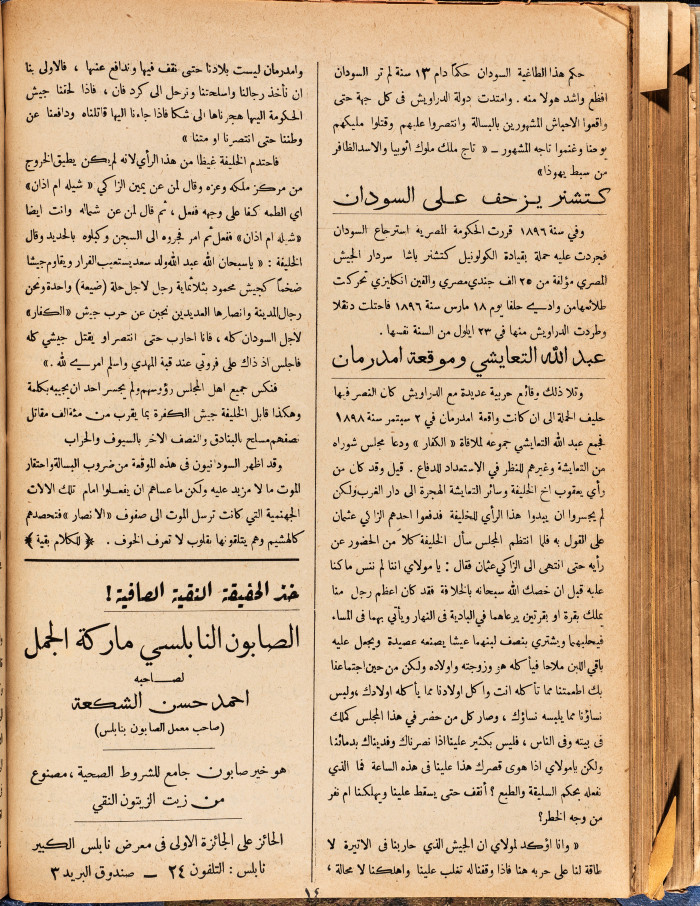 حكم هذا الطاغية السودان حكماً دام ١٣ سنة لم تر السودان
افظع واشد هولا منه . وامتدت دولة الدراويش فى كل جهة حتى
واقعوا الاحباش المشهورين بالبسالة وانتصروا عليهم وقتلوا مليكهم
يوحنا وغنموا تاجه المشهور ـ « تاج ملك ملوك أثوبيا والاسد الظافر
من سبط يهوذا»
كتشنر يزحف على السودان
وفي سنة ١٨٩٦ قررت الحكومة المصرية استرجاع السودان
فجردت عليه حملة بقيادة الكولونيل كتشنر باشا سردار الجيش
المصري مؤلفة من ٢٥ الف جندي مصري والفين انكليزي تحركت
طلائعها من وادي حلفا يوم ١٨ مارس سنة ١٨٩٦ فاحتلت دنقلا
وطردت الدراويش منها في ٢٣ ايلول من السنة نفسها .
عبد الله التعايشي وموقعة امدرمان
وتلا ذلك وقائع حربية عديدة مع الدراويش كان النصر فيها
حليف الحملة الى ان كانت واقعة امدرمان في ٢ سبتمبر سنة ١٨٩٨
فجمع عبد الله التعايشي جموعه لملاقاة « الكفار » ودعا مجلس شوراه
من التعايشة وغيرهم للنظر في الاستعداد للدفاع . قيل وقد كان من
رأي يعقوب اخ الخليفة وسائر التعايشة الهجرة الى دار الغرب ولكن
لم يجسروا ان يبدوا هذا الرأي للخليفة فدفعوا احدهم الزاكي عثمان
على القول به فلما انتظم المجلس سأل الخليفة كلاً من الحضور عن
رأيه حتى انتهى الى الزاكي عثمان فقال : يا مولاي اننا لم ننس ما كنا
عليه قبل ان خصك الله سبحانه بالخلافة فقد كان اعظم رجل منا
يملك بقرة او بقرتين يرعاهما في البادية فى النهار ويأتي بهما فى المساء
فيحلبهما ويشتري بنصف لبنهما عيشا يصنعه عصيدة ويجعل عليه
باقي اللبن ملاحا فيأكله هو وزوجته واولاده ولكن من حين اجتماعنا
بك اطعمتنا مما تأكله انت واكل اولادنا مما يأكله اولادك ، وليس
نساؤنا مما يلبسه نساؤك ، وصار كل من حضر في هذا المجلس كملك
فى بيته وفى الناس ، فليس بكثير علينا اذا نصرناك وفديناك بدمائنا
ولكن يا مولاي اذا هوى قصرك هذا علينا فى هذه الساعة فما الذي
نفعله بحكم السليقة والطبع ؟ أنقف حتى يسقط علينا ويهلكنا ام نفر
من وجه الخطر؟
« وانا اؤكد لمولاي ان الجيش الذي حاربنا فى الاتبرة لا
طاقة لنا على حربه هنا فاذا وقفنا له تغلب علينا واهلكنا لا محالة ،
وامدرمان ليست بلادنا حتى نقف فيها وندافع عنها ، فالاولى بنا
ان نأخذ رجالنا واسلحتنا ونرحل الى كردفان ، فاذا لحقنا جيش
الحكومة اليها هجرناها الى شكا فاذا جاءنا اليها قاتلناه ودافعنا عن
وطننا حتى انتصرنا او متنا »
فاحتدم الخليفة غيظا من هذا الرأي لانه لم يكن يطيق الخروج
من مركز ملكه وعزه وقال لمن عن يمين الزاكي « شيله ام اذان»
اي الطمه كفا على وجهه ففعل ، ثم قال لمن عن شماله وانت ايضا
«شيله ام اذان» ففعل ثم امر فجروه الى السجن وكبلوه بالحديد وقال
الخليفة : « ياسبحان الله عبد الله ولد سعد يستعيب الفرار ويقاوم جيشا
ضخماً كجيش محمود بثلاثماية رجل لاجل حلة (ضيعة) واحدة ونحن
رجال المدينة وانصارها العديدين نجبن عن حرب جيش «الكفار»
لاجل السودان كله ، فانا احارب حتى انتصر او يقتل جيشي كله
فاجلس اذ ذاك على فروتي عند قبة المهدي واسلم امري لله .»
فنكس جميع اهل المجلس رؤوسهم ولم يجسر احد ان يجيبه بكلمة
وهكذا قابل الخليفة جيش الكفرة بما يقرب من مئة الف مقاتل
نصفهم مسلح بالبنادق والنصف الاخر بالسيوف والحراب
وقد اظهر السودانيون فى هذه الموقعة من ضروب البسالة واحتقار
الموت ما لا مزيد عليه ولكن ما عساهم ان يفعلوا امام تلك الالات
الجهنمية التي كانت ترسل الموت الى صفوف « الانصار » فتحصدهم
كالهشيم وهم يتلقونها بقلوب لا تعرف الخوف . ﴿ للكلام بقية ﴾
خذ الحقيقة النقية الصافية !
الصابون النابلسي ماركة الجمل
لصاحبه
احمد حسن الشكعة
(صاحب معمل الصابون بنابلس)
هو خير صابون جامع للشروط الصحية ، مصنوع
من زيت الزيتون النقي
الحائز على الجائزة الاولى فى معرض نابلس الكبير
نابلس : التلفون ٢٤ ـ صندوق البريد ٣
١٤